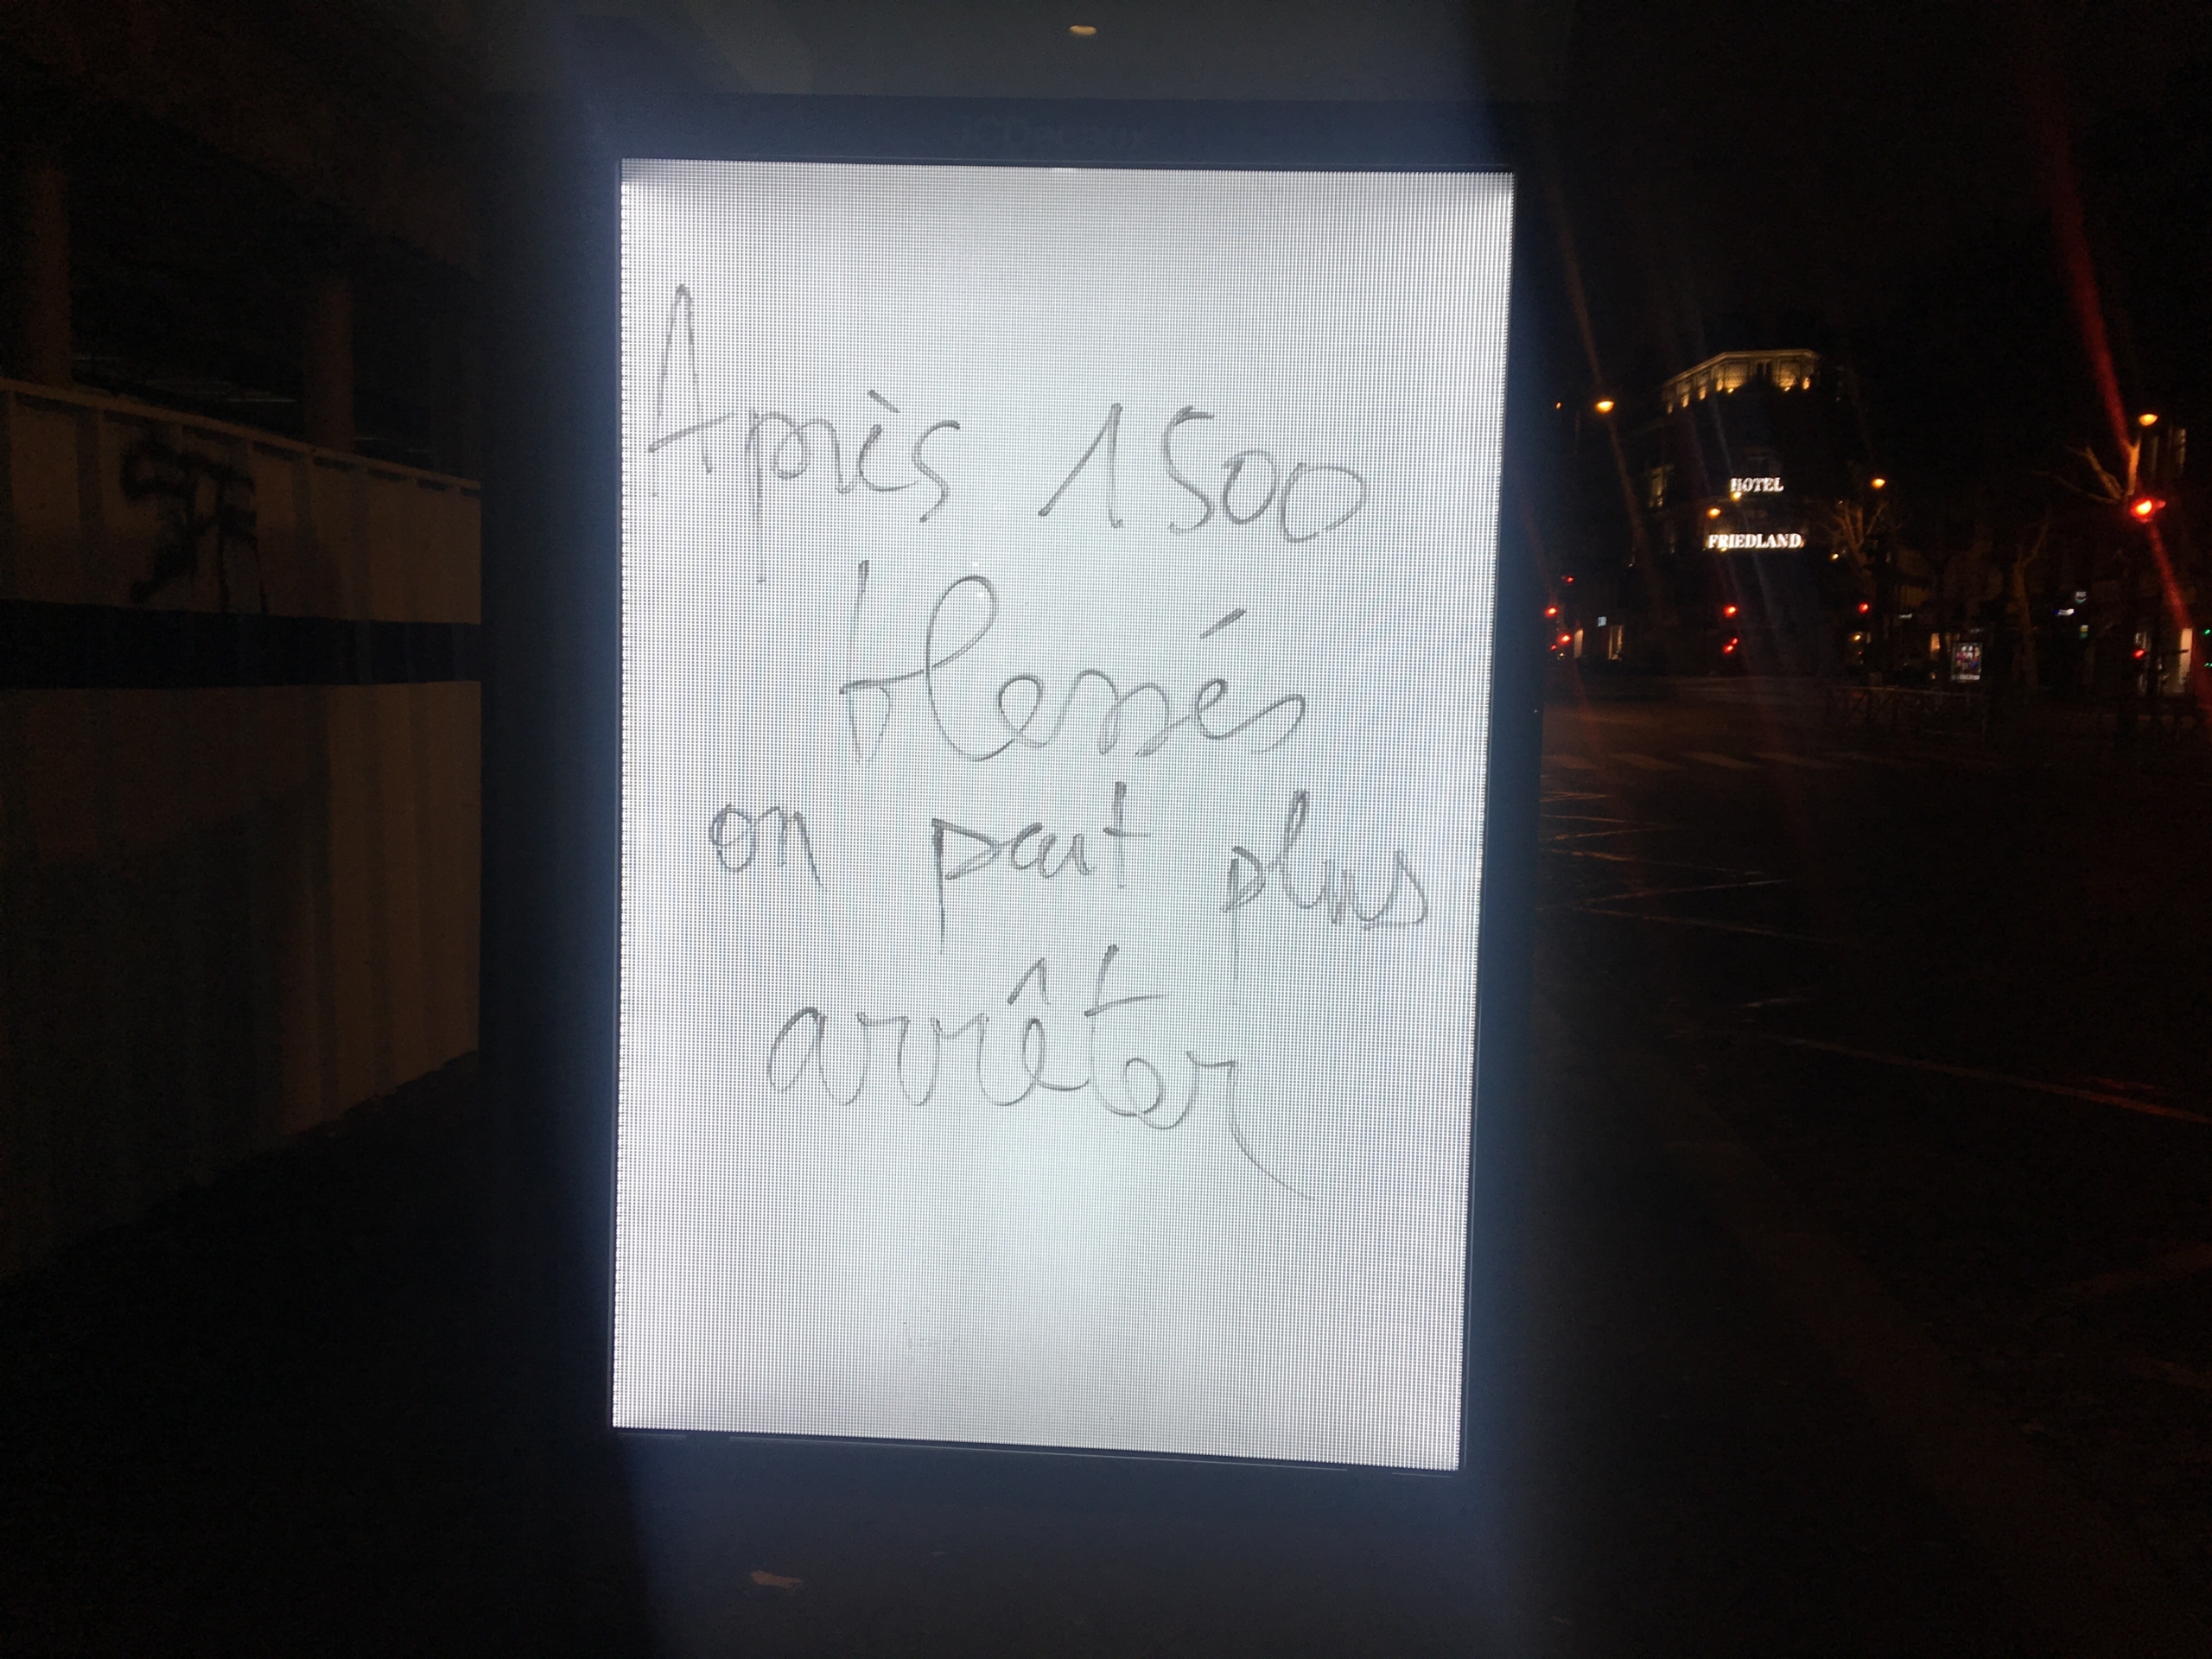 JCDecaux
Après 1500
blessés
on peut plus
arrêter
HOTEL
FRIEDLAND